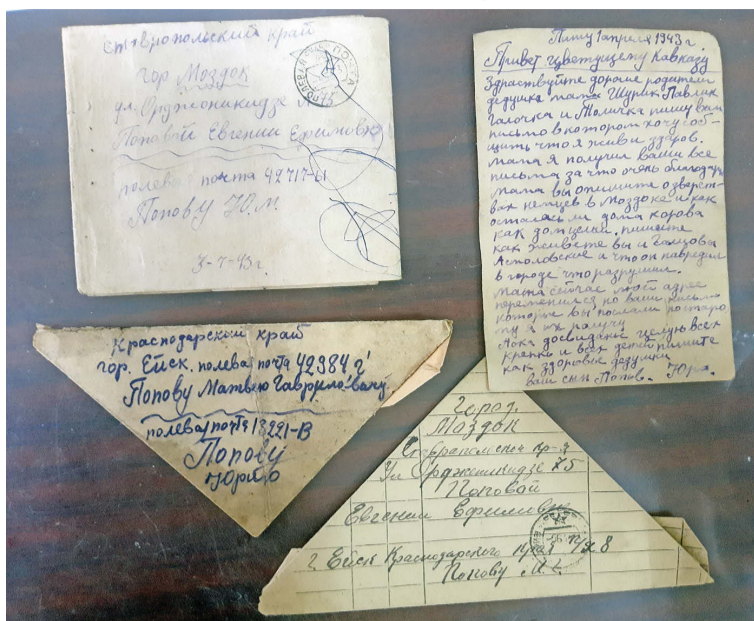 ставропольский край
гор Моздок
ул. Орджоникидзе № 75
Поповой Евгении Ефимовне
полева почта 42717-Ы
Попову Ю. М.
3-7-43г.
Пишу 1 апреля 1943 г
Привет цветущему Кавказу
Здраствуйте дорогие родители
дедушка мама Шурик Павлик
Галочка и Толичка пишу вам
письмо в котором хочу сооб-
щить что я жив и здоров.
мама я получил ваши все
письма за что очень благодарю
мама вы опишите о зверст-
вах немцев в Моздоке и как
осталась ли дома корова
как дом целый. пишите
как живете вы и
и что он навредил
в городе что разрушил.
мама сейчас мой адрес
переменился но ваши письма
которые вы послали по старо
му я их получу
Пока досвидание целую всех
крепко и всех детей пишите
как здоровье дедушки
ваш сын Попов. Юра.
Краснодарский край
гор. Ейск. полева почта 42384 г
Попову Матвею Гавриловичу
полева почта 13221-В
Попову
Юрию
Город.
Моздок
Ул Орджоникидзе 75
Поповой
Евгении Ефимовне
г. Ейск Краснодарского края 8
Попову М. Г.